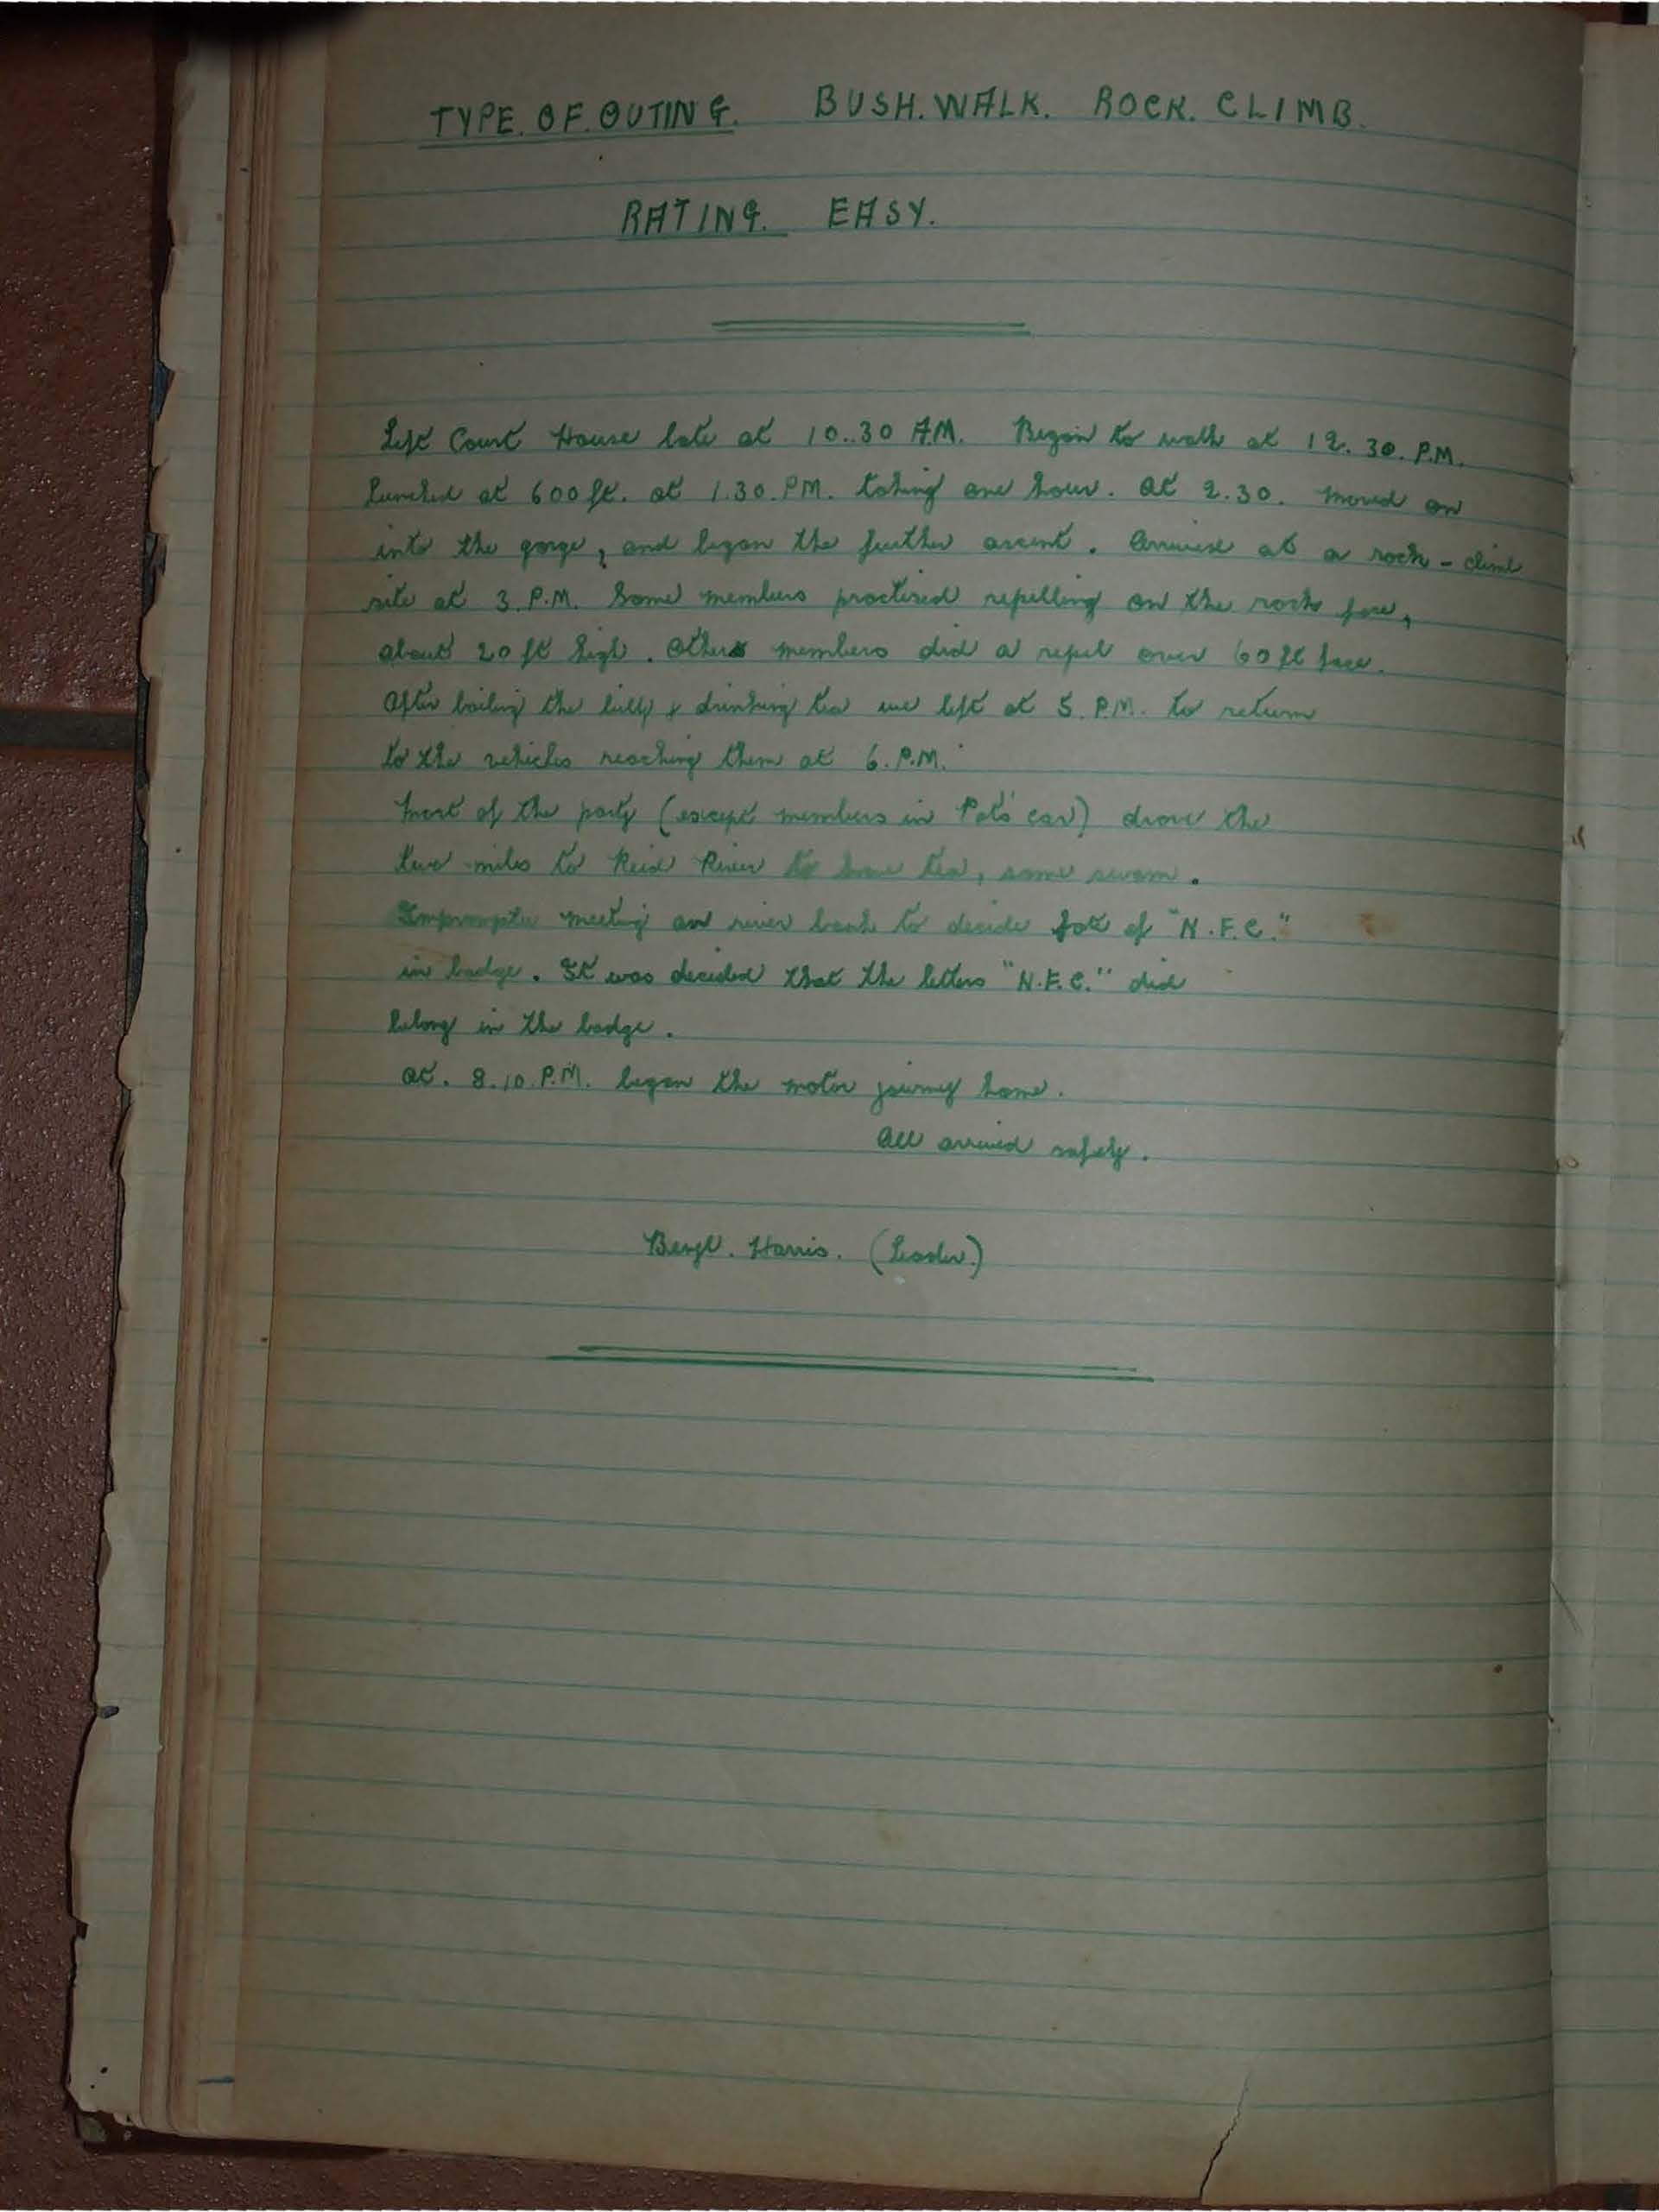 TYPE. OF. OUTING. BUSH. WALK. ROCK. CLIMB.
RATING. EASY.
Left Court House late at 10..30 A.M. Began to walk at 12. 30. P.M.
Lunched at 600 ft. at 1.30. P.M. taking one hour. At 2.30. moved on
into the gorge, and began the further ascent. Arrived at a rock - climb
site at 3. P.M. Some members practised repelling on the rock face,
about 20 ft high. Others members did a repel over 60 ft face.
After boiling the billy & drinking tea we left at 5. P.M. to return
to the vehicles reaching them at 6. P.M.
Most of the party (except members in Pat's car) drove the
two miles to Reid River to have tea, some swam.
Impromptu meeting on river bank to decide fate of "N.F.C."
in badge. It was decided that the letters "N.F.C." did
belong in the badge.
At. 8.10. P.M. began the motor journey home.
All arrived safely.
Beryl. Harris. (Leader.)